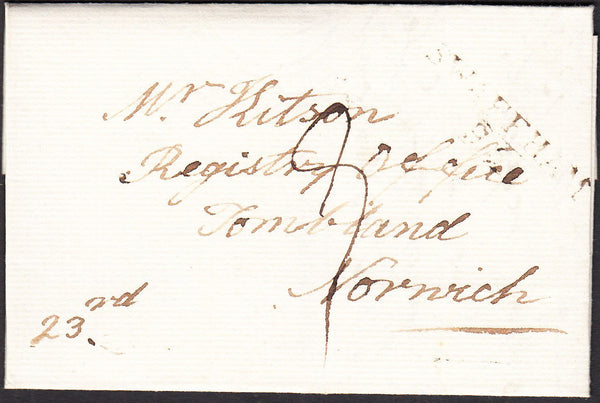 SWAFFHAM
Mr Kitson
Registry Office
Tombland
Norwich
23.rd